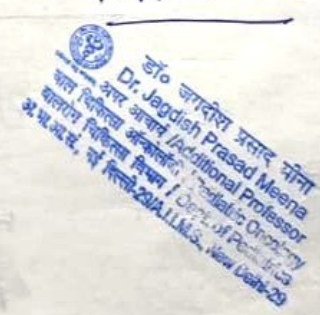 डॉ० जगदीश प्रसाद मीना
Dr. Jagdish Prasad Meena
अपर आचार्य /Additional Professor
बाल चिकित्सा ऑन्कोलॉजी / Pediatric Oncology
बालरोग चिकित्सा विभाग / Dept. of Pediatrics
अ.भा.आ.सं., नई दिल्ली-29/A.I.I.M.S., New Delhi-29